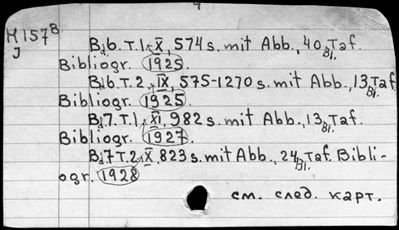 M157B
J
Bd.6. T.1. X, 574 s. mit Abb., 40 Taf. Bl.
Bibliogr. 1925.
Bd.6. T.2. IX, 575-1270 s. mit Abb., 13 Taf. Bl.
Bibliogr. 1925.
Bd.7. T.1. XI, 982 s. mit Abb., 13 Taf. Bl.
Bibliogr. 1927.
Bd.7 T.2. X 823 s. mit Abb., 24 Taf. Bl. Bibli-
ogr. 1928
см. след. карт.